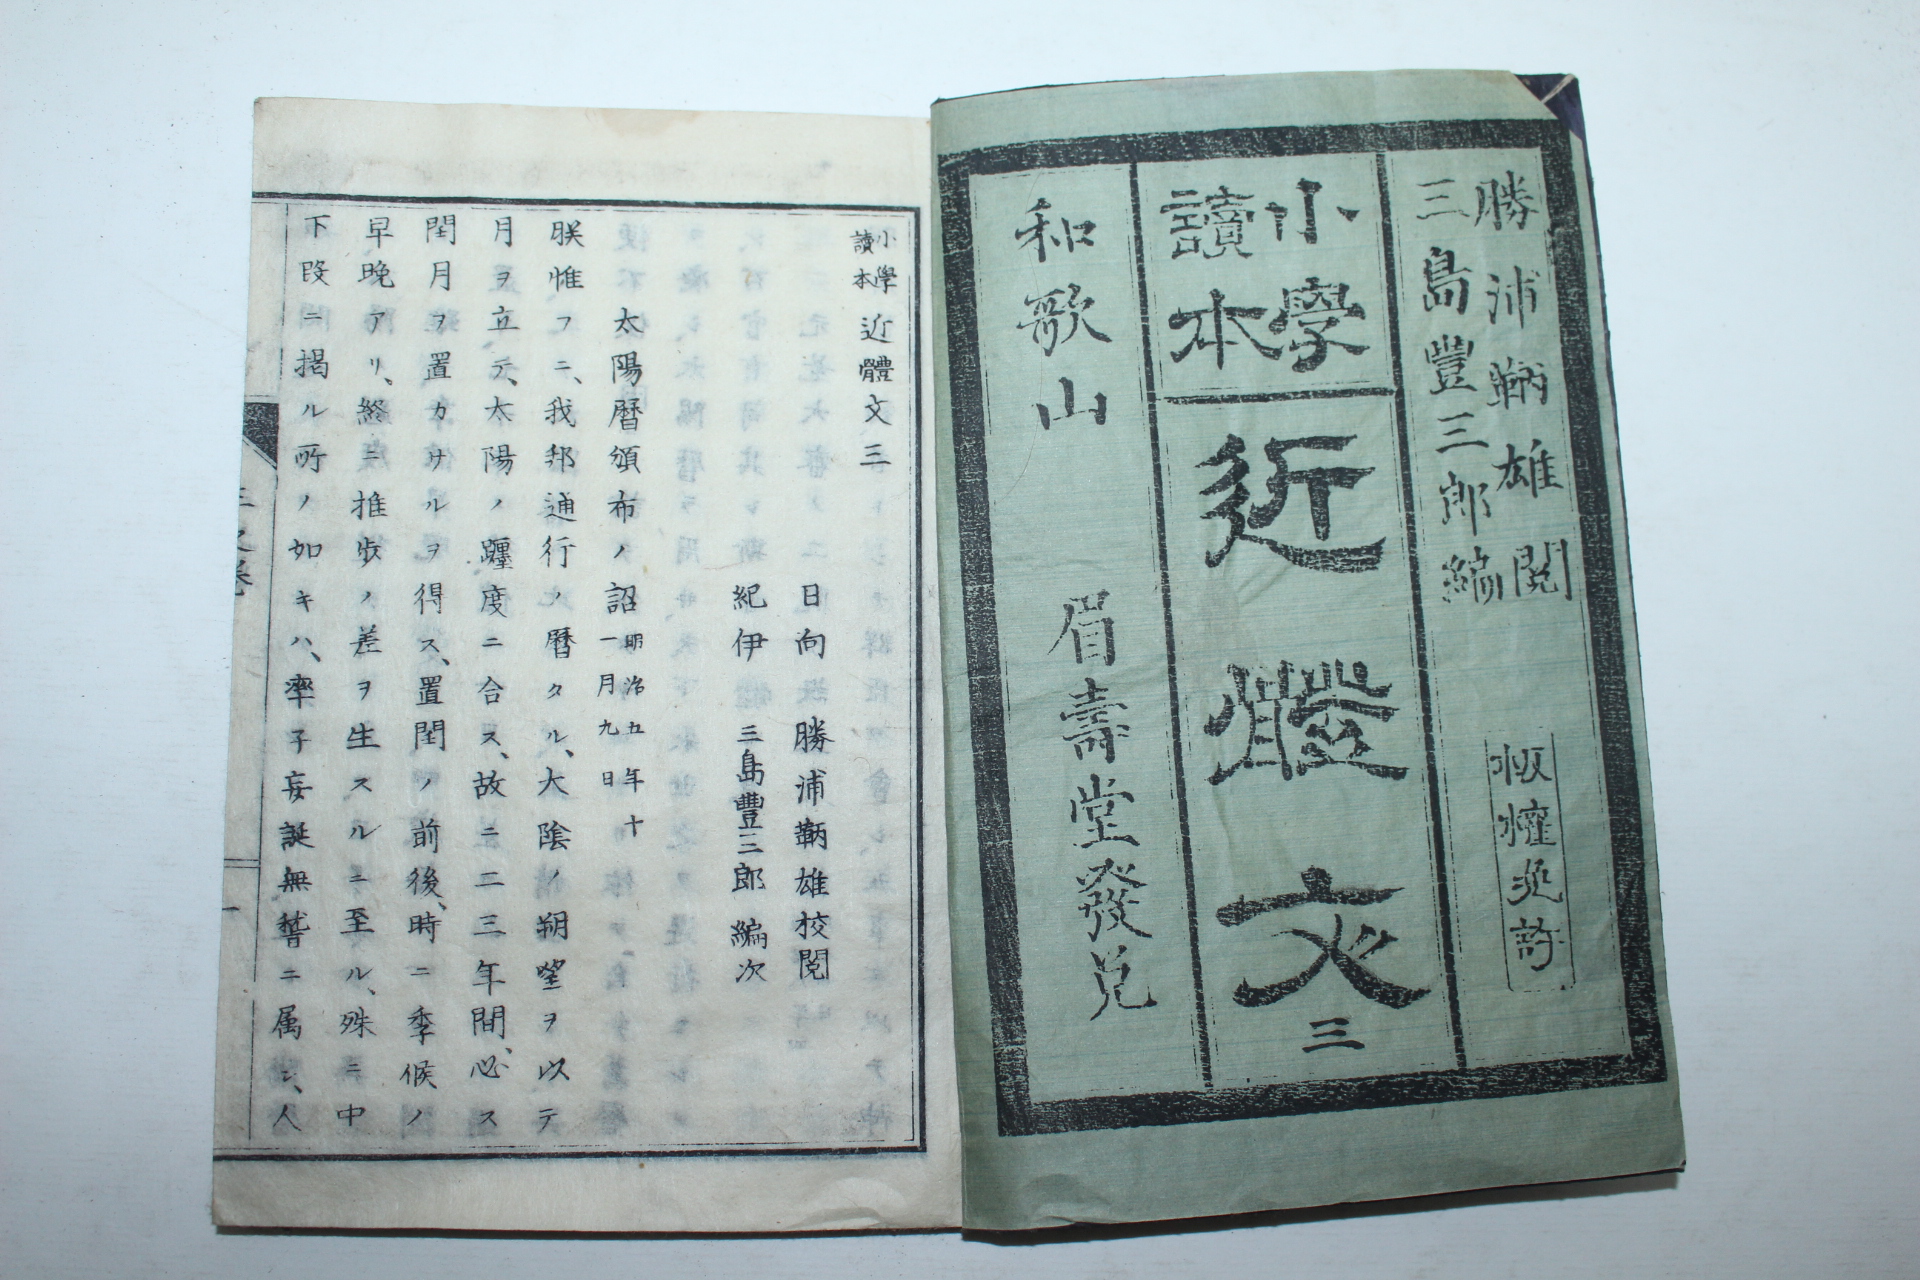 勝浦鞆雄閲
三島豐三郎編
板權免許
小學
讀本
近體文
三
和歌山 眉壽堂發兌
小學讀本近體文三
日向 勝浦鞆雄校閲
紀伊 三島豐三郎編次
太陽暦頒布ノ詔 明治五年十一月九日
朕惟フニ、我邦通行ノ暦タル、太陰ノ朔望ヲ以テ
月ヲ立テ、太陽ノ躔度ニ合ス、故ニ二三年間、必ス
閏月ヲ置カサルヲ得ス、置閏ノ前後、時ニ季候ノ
早晩アリ、終ニ推歩ノ差ヲ生スルニ至ル、殊ニ中
下段ニ掲ル所ノ如キハ、率子妄誕無稽ニ属シ、人
三之巻
一